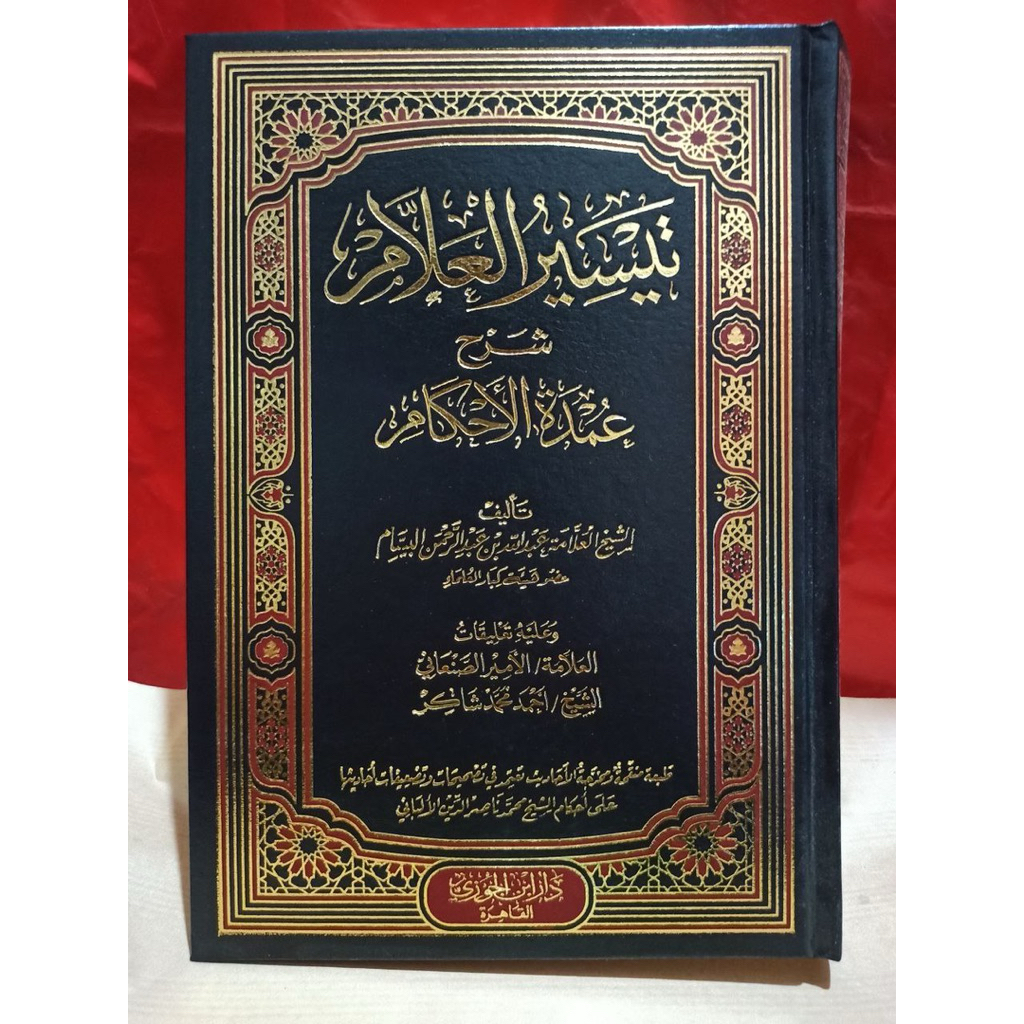 تَيسِيرُ العَلَّامِ
شَرْح
عُمْدَةُ الأَحْكَامِ
تَأليف
الشيخ العلَّامة عبد الله بن عبد الرَّحمن البسَّام
عضو هيئة كبار العلماء
وَعَليَه تَعْليقَات
العَلاَّمَة / الأمِيْر الصَّنْعَاني
الشَّيْخ / أحْمَد مُحَمَّد شَاكِرْ
طبعة منقحة ومخرجة الأحاديث تعتمد في تصحيحات وتضعيفات أحاديثها
على أحكام الشيخ محمد ناصر الدين الألباني
دَارُ ابْن الجَوْزي
القَاهِرَة